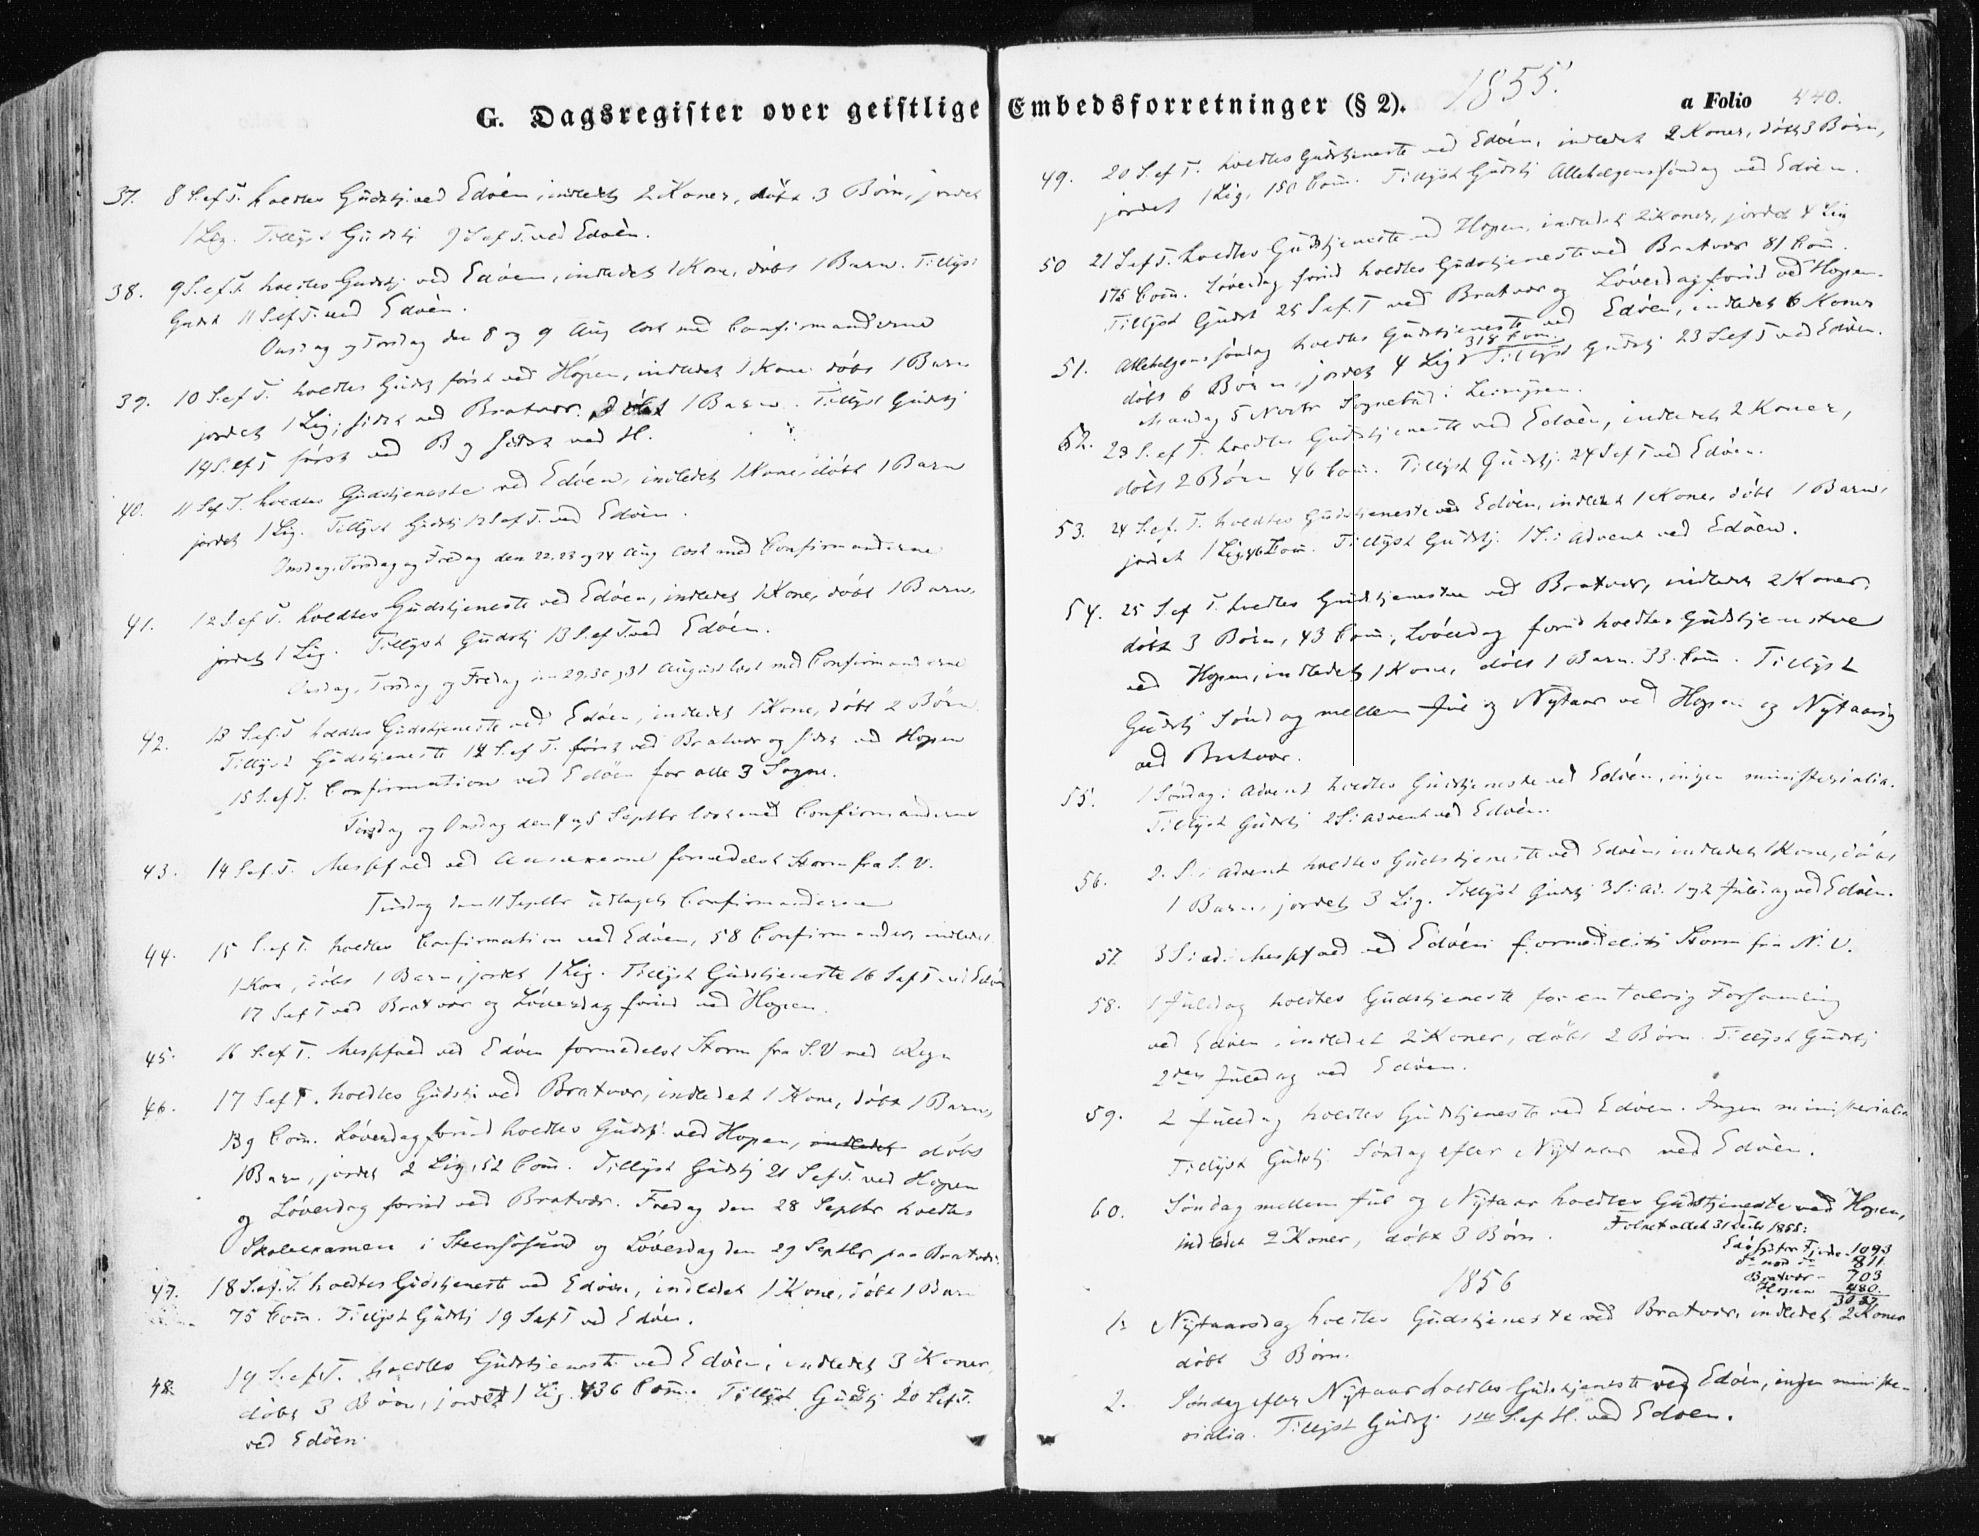 G. Dagsregister over geistlige Embedsforretninger (§ 2). 1855. a Folio 440.
37. 8 S. ef T. holdtes Gudstj. ved Edöen, indledet 2 Koner, döbt 3 Börn, jordet
1 Lig. Tillyst Gudstj 9 S ef T. ved Edöen.
38. 9 S. ef T. holdtes Gudstj. ved Edöen, indledet 1 Kone, döbt 1 Barn. Tillyst
Gudst 11 S ef T. ved Edöen.
Onsdag og Torsdag den 8 og 9 Aug læst med Confirmanderne
39. 10 S. ef T. holdtes Gudstj först ved Hopen, indledet 1 Kone döbt 1 Barn
jordet 1 Lig; sidst ved Bratvær, döbt 1 Barn. Tillyst Gudstj
14 S. ef T först ved B og sidst ved H.
40. 11 S ef T. holdtes Gudstjeneste ved Edöen, indledet 1 Kone, döbt 1 Barn
jordet 1 Lig. Tillyst Gudstj 12 S ef T. ved Edöen.
Onsdag, Torsdag og Fredag den 22. 23 og 24 Aug læst med Confirmanderne
41. 12 S. ef T. holdtes Gudstjeneste ved Edöen, indledet 1 Kone, döbt 1 Barn,
jordet 1 Lig. Tillyst Gudstj 13 S. ef T. ved Edöen.
Onsdag, Torsdag og Fredag den 29. 30 og 31 August læst med Confirmanderne
42. 13 S. ef T holdtes Gudstjeneste ved Edöen, indledet 1 Kone, döbt 2 Börn
Tillyst Gudstjeneste 14 S. ef T. först ved Bratvær og sidst ved Hopen
15 S. ef T. Confirmation ved Edöen for alle 3 Sogne.
Tirsdag og Onsdag den 4 og 5 Septbr læst med Confirmanderne
43. 14 S. ef. T. Messfald ved Annexerne formedelst Storm fra S. V.
Tirsdag den 11 Septbr udtaget Confirmanderne
44. 15 S. ef T. holdtes Confirmation ved Edöen, 58 Confirmander, indledet
1 Kone, döbt 1 Barn, jordet 1 Lig. Tillyst Gudstjeneste 16 S ef T ved Edöen
17 S ef T ved Bratvær og Löverdag forud ved Hopen.
45. 16 S. ef T. Messfald ved Edöen formedelst Storm fra S. V med Regn
46. 17 S ef T. holdtes Gudstj ved Bratvær, indledet 1 Kone, döbt 1 Barn,
139 Com. Löverdag forud holdtes Gudstj. ved Hopen, indledet döbt
1 Barn, jordet 2 Lig, 52 Com. Tillyst Gudstj 21 S ef T. ved Hopen
og Löverdag forud ved Bratvær. Fredag den 28 Septbr holdtes
Skoleexamen i Steensösund og Löverdag den 29 Septbr paa Bratvær.
47. 18 S. ef. T. holdtes Gudstjeneste ved Edöen, indledet 1 Kone, döbt 1 Barn
75 Com. Tillyst Gudstj 19 S ef T ved Edöen.
48. 19 S. ef. T. holdtes Gudstjeneste ved Edöen, indledet 3 Koner,
döbt 3 Börn, jordet 1 Lig. 136 Com. Tillyst Gudstj 20 S ef T.
ved Edöen.
49. 20 S. ef T. holdtes Gudstjeneste ved Edöen, indledet 2 Koner, döbt 3 Börn,
jordet 1 Lig, 150 Com. Tillyst Gudstj Allehelgensöndag ved Edöen.
50 21 S ef T. holdtes Gudstjeneste ved Hopen, indledet 2 Koner, jordet 4 Lig
175 Com. Löverdag forud holdtes Gudstjeneste ved Bratvær 81 Com.
Tillyst Gudst 25 S. ef. T ved Bratvær og Löverdag forud ved Hopen.
51. Allehelgensöndag holdtes Gudstjeneste ved Edöen, indledet 6 Koner
döbt 6 Börn, jordet 4 Lig 318 Com. Tillyst Gudstj 23 S ef T ved Edöen.
Mandag 5 Novbr Sognebud i
52. 23 S. ef T. holdtes Gudstjeneste ved Edöen, indledet 2 Koner,
döbt 2 Börn 46 Com. Tillyst Gudstj. 24 S ef T ved Edöen.
53. 24 S. ef. T. holdtes Gudstjeneste ved Edöen, indledet 1 Kone, döbt 1 Barn,
jordet 1 Lig, 46 Com. Tillyst Gudstj. 1 S. i Advent ved Edöen.
54. 25 S. ef T. holdtes Gudstjeneste ved Bratvær, indledet 2 Koner,
döbt 3 Börn, 43 Com, Löverdag forud holdtes Gudstjeneste
ved Hopen, indledet 1 Kone, döbt 1 Barn. 33. Com. Tillyst
Gudstj Söndag mellem Jul og Nytaar ved Hopen og Nytaarsdag
ved Bratvær.
55. 1 Söndag i Advent holdtes Gudstjeneste ved Edöen, ingen ministerialia.
Tillyst Gudstj 2 S. i Advent ved Edöen.
56. 2. S. i Advent holdtes Gudstjeneste ved Edöen, indledet 1 Kone, döbt
1 Barn, jordet 3 Lig. Tillyst Gudstj 3 S. i Ad. 1 og 2 Juledag ved Edöen.
57. 3 S. i ad. Messfald ved Edöen formedelst Storm fra N. V.
58. 1 Juledag holdtes Gudstjeneste for en talrig Forsamling
ved Edöen, indledet 2 Koner, döbt 2 Börn. Tillyst Gudstj
2den Juledag ved Edöen.
59. 2 Juledag holdtes Gudstjeneste ved Edöen. Ingen ministerialia
Tillyst Gudstj Söndag efter Nytaar ved Edöen.
60. Söndag mellem Jul og Nytaar holdtes Gudstjeneste ved Hopen,
indledet 2 Koner, döbt 3 Börn.
Folketallet 31 Decbr 1855:
Edö Fjerd. 1093
do nord do 811
Bratvær - 703
Hopen 480.
3087
1856
1. Nytaarsdag holdtes Gudstjeneste ved Bratvær, indledet 2 Koner
döbt 3 Börn.
2. Söndag efter Nytaar holdtes Gudstjeneste ved Edöen, ingen ministe-
rialia. Tillyst Gudstj 1ste S. ef H. ved Edöen.